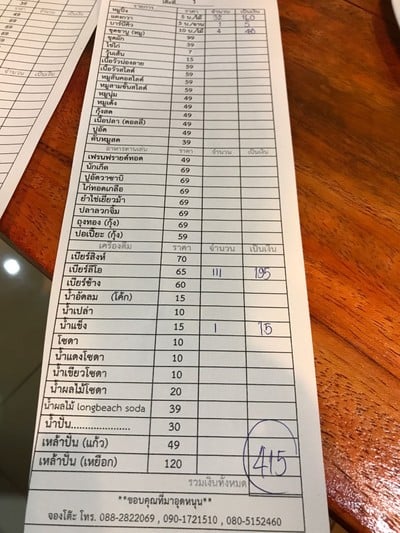 โต๊ะที่ 1
รายการ ราคา จำนวน เป็นเงิน
หมูปิ้ง 5 บ./ไม้ 32 160
บาร์บีคิว 5 1 5
ชุดจาน (หมู) 10 บ./ไม้ 4 40
ชุดผัก 99
ไข่ไก่ 39
วุ้นเส้น 7
15
เนื้อวัวสไลด์ 59
หมูสันคอสไลด์ 59
หมูสามชั้นสไลด์ 59
หมูนุ่ม 59
หมูเด้ง 49
กุ้งสด 49
เนื้อปลา (ดอลลี่) 49
ปูอัด 49
ตับหมูสด 39
อาหารทานเล่น ราคา จำนวน เป็นเงิน
เฟรนฟรายด์ทอด 49
นักเก็ต 49
ปูอัดวาซาบิ 69
ไก่ทอดเกลือ 69
ยำไข่เยี่ยวม้า 69
ปลาลวกจิ้ม 69
ถุงทอง (กุ้ง) 69
ปอเปี๊ยะ (กุ้ง) 59
เครื่องดื่ม ราคา จำนวน เป็นเงิน
เบียร์สิงห์ 70
เบียร์ลีโอ 65 III 195
เบียร์ช้าง 60
น้ำอัดลม (โค้ก) 15
น้ำเปล่า 10
น้ำแข็ง 15 1 15
โซดา 10
น้ำแดงโซดา 10
น้ำเขียวโซดา 10
น้ำผลไม้โซดา 20
น้ำผลไม้ longbeach soda 39
น้ำปั่น..................... 30
เหล้าปั่น (แก้ว) 49
เหล้าปั่น (เหยือก) 120 415
รวมเงินทั้งหมด
**ขอบคุณที่มาอุดหนุน**
จองโต๊ะ โทร. 088-2822069 , 090-1721510 , 080-5152460